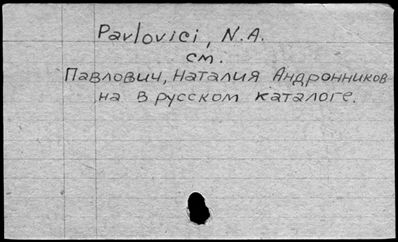 Pavlovici, N.A.
см.
Павлович, Наталия Андронников
на в русском каталоге.